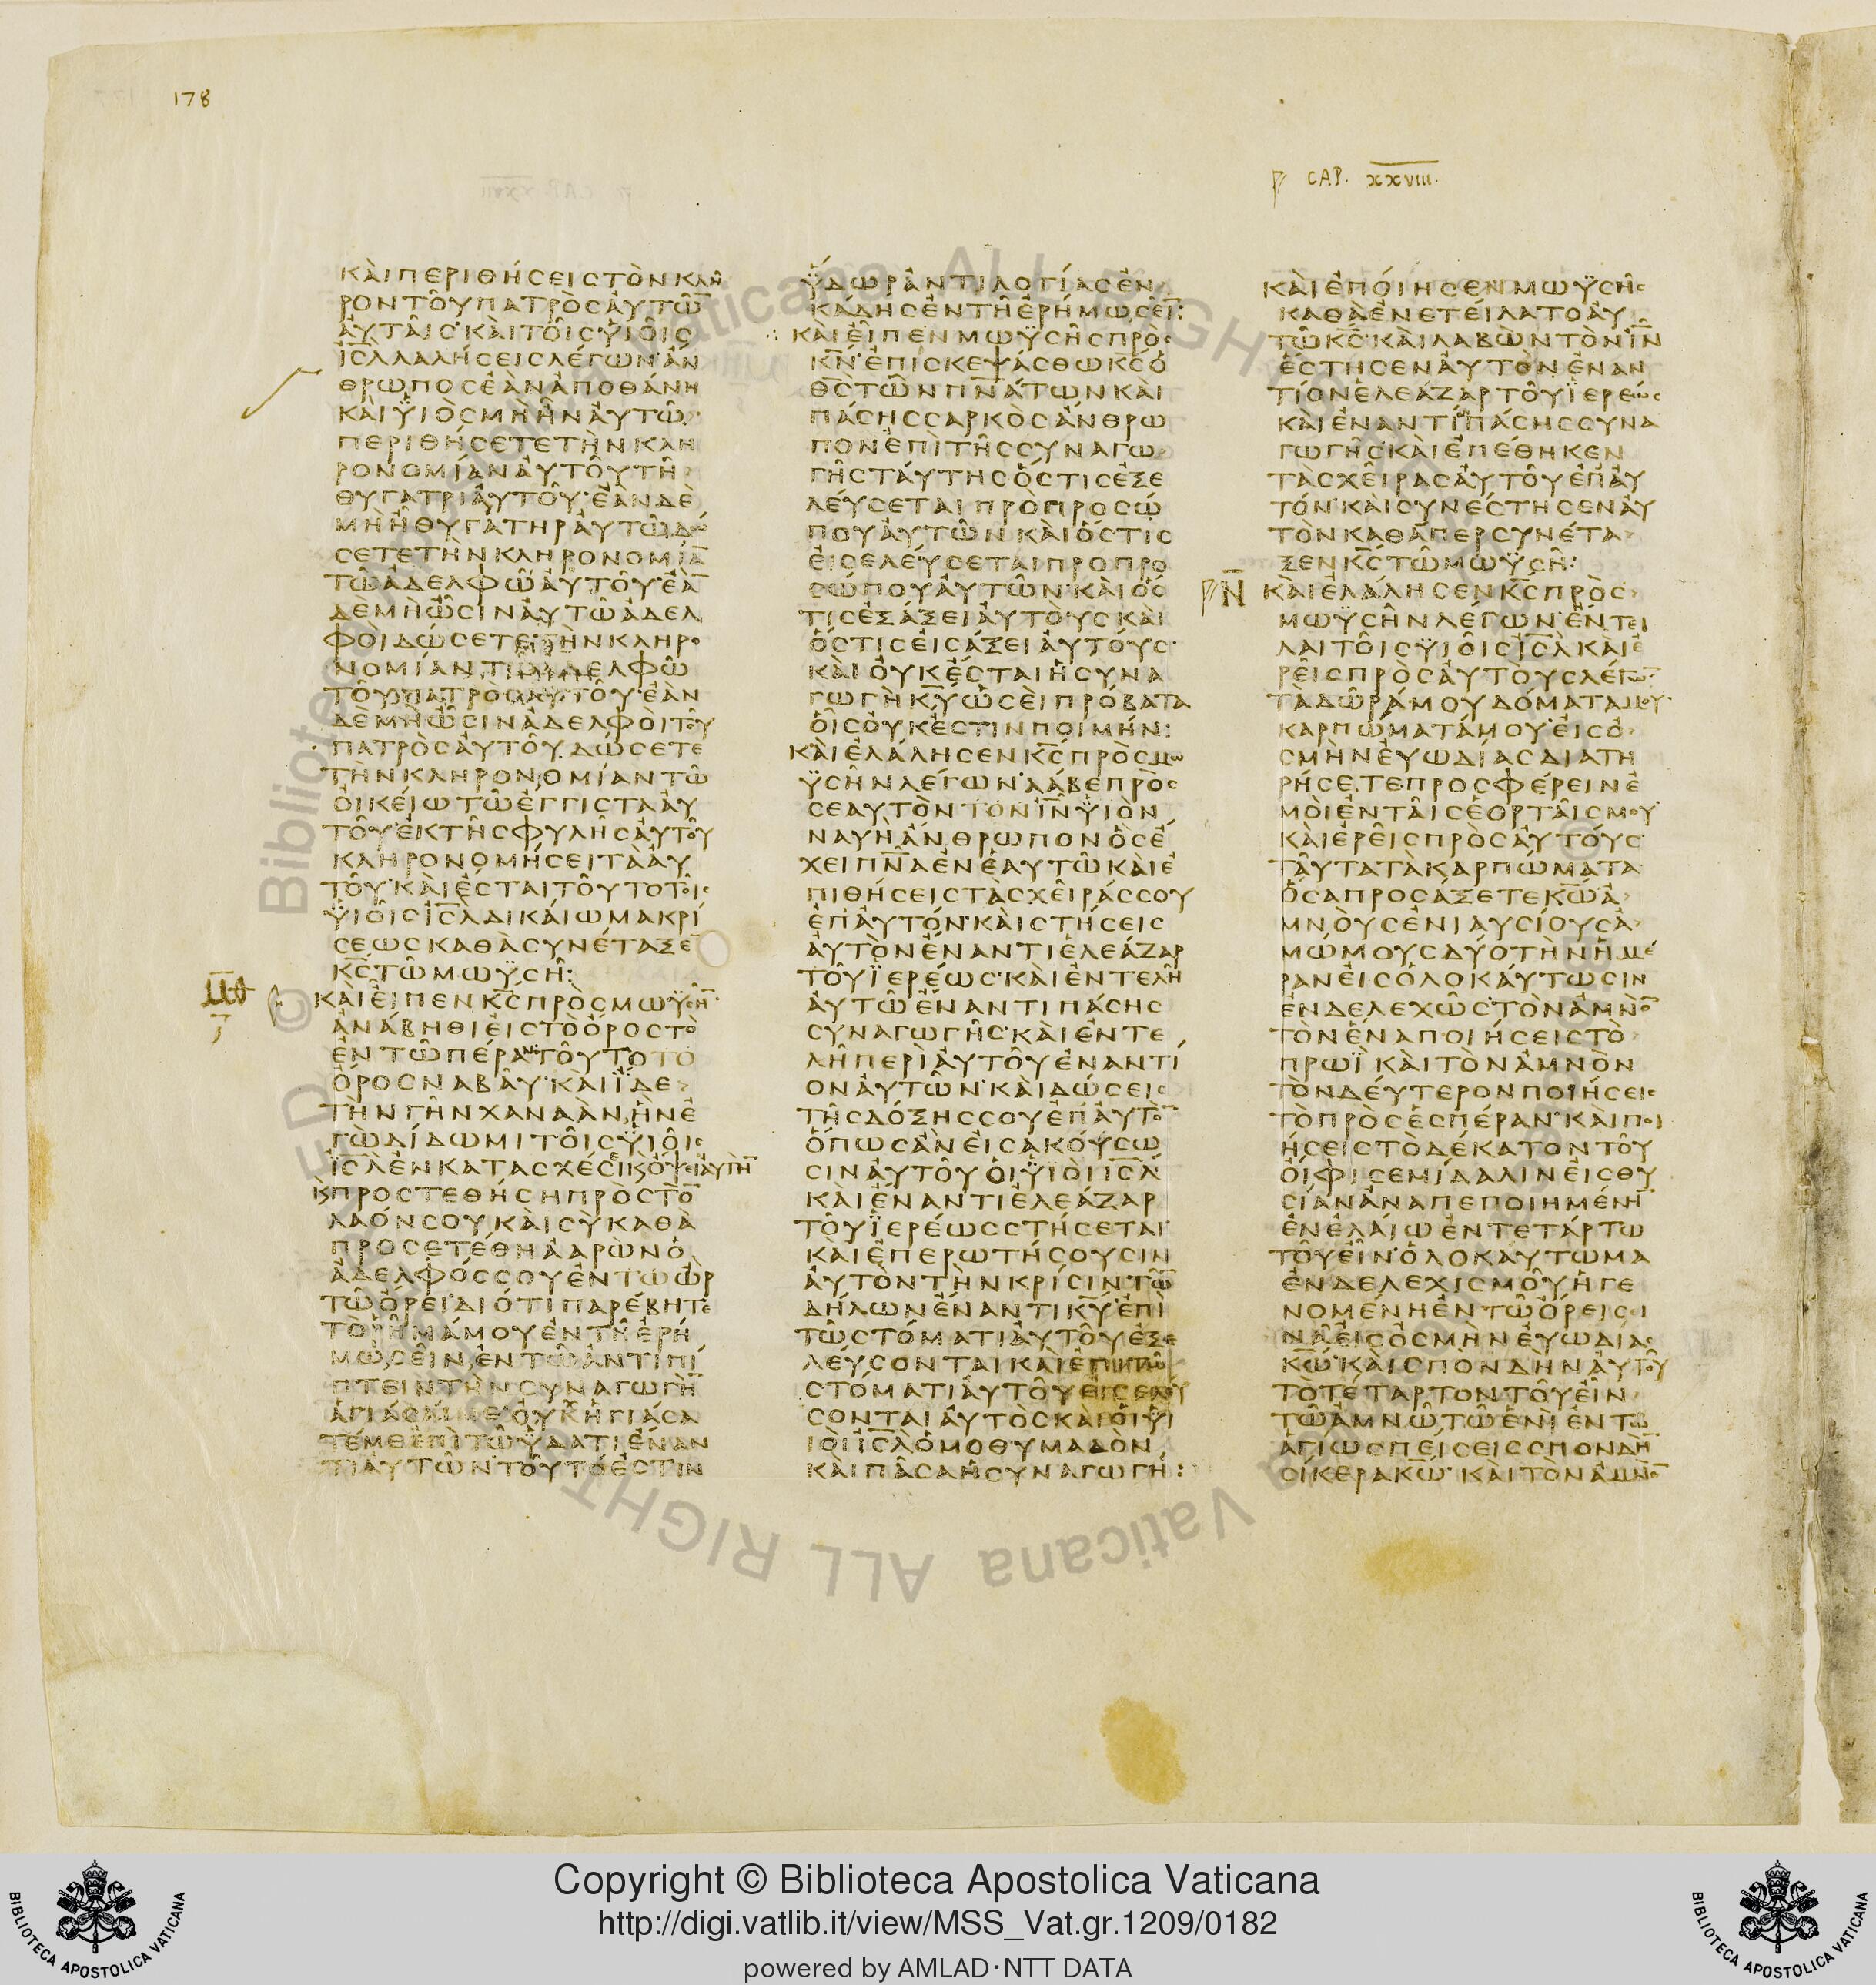 178
CAP. XXVIII.
ΚΑΙΠΕΡΙΘΗΣΕΙΣΤΟΝΚΛΗ
ΡΟΝΤΟΥΠΑΤΡΟΣΑΥΤΩ̅
ΑΥΤΑΙΣ·ΚΑΙΤΟΙΣΥΙΟΙΣ
ΙΣ̅Λ̅ΛΑΛΗΣΕΙΣΛΕΓΩΝ·ΑΝ
ΘΡΩΠΟΣΕΑΝΑΠΟΘΑΝΗ
ΚΑΙΥΙΟΣΜΗΗΝΑΥΤΩ·
ΠΕΡΙΘΗΣΕΤΕΤΗΝΚΛΗ
ΡΟΝΟΜΙΑΝΑΥΤΟΥΤΗ
ΘΥΓΑΤΡΙΑΥΤΟΥ·ΕΑΝΔΕ
ΜΗΗΘΥΓΑΤΗΡΑΥΤΩΔΩ
ΣΕΤΕΤΗΝΚΛΗΡΟΝΟΜΙΑ̅
ΤΩΑΔΕΛΦΩΑΥΤΟΥ·ΕΑ̅
ΔΕΜΗΩΣΙΝΑΥΤΩΑΔΕΛ
ΦΟΙΔΩΣΕΤΕΤΗΝΚΛΗΡΟ
ΝΟΜΙΑΝΤΩΑΔΕΛΦΩ
ΤΟΥΠΑΤΡΟΣΑΥΤΟΥ·ΕΑΝ
ΔΕΜΗΩΣΙΝΑΔΕΛΦΟΙΤΟΥ
ΠΑΤΡΟΣΑΥΤΟΥ·ΔΩΣΕΤΕ
ΤΗΝΚΛΗΡΟΝΟΜΙΑΝΤΩ
ΟΙΚΕΙΩΤΩΕΓΓΙΣΤΑΑΥ
ΤΟΥ·ΕΚΤΗΣΦΥΛΗΣΑΥΤΟΥ
ΚΛΗΡΟΝΟΜΗΣΕΙΤΑΑΥ
ΤΟΥ·ΚΑΙΕΣΤΑΙΤΟΥΤΟΤΟΙΣ
ΥΙΟΙΣΙΣ̅Λ̅ΔΙΚΑΙΩΜΑΚΡΙ
ΣΕΩΣΚΑΘΑΣΥΝΕΤΑΞΕ̅
ΚΣ̅ΤΩΜΩΥΣΗ:
ΜΘ
ΚΑΙΕΙΠΕΝΚΣ̅ΠΡΟΣΜΩΥΣΗ̅·
ΑΝΑΒΗΘΙΕΙΣΤΟΟΡΟΣΤΟ
ΕΝΤΩΠΕΡΑΝΤΟΥΤΟΤΟ
ΟΡΟΣΝΑΒΑΥ·ΚΑΙΙΔΕ
ΤΗΝΓΗΝΧΑΝΑΑΝΗΝΕ
ΓΩΔΙΔΩΜΙΤΟΙΣΥΙΟΙΣ
ΙΣ̅Λ̅ΕΝΚΑΤΑΣΧΕΣΕΙΚΟΨΕΙΑΥΤΗ̅
ΚΠΡΟΣΤΕΘΗΣΗΠΡΟΣΤΟ̅
ΛΑΟΝΣΟΥΚΑΙΣΥΚΑΘΑ
ΠΡΟΣΕΤΕΘΗΑΑΡΩΝΟ
ΑΔΕΛΦΟΣΣΟΥΕΝΤΩΩΡ
ΤΩΟΡΕΙ·ΔΙΟΤΙΠΑΡΕΒΗΤΕ
ΤΟΡΗΜΑΜΟΥΕΝΤΗΕΡΗ
ΜΩΣΕΙΝΕΝΤΩΑΝΤΙΠΙ
ΠΤΕΙΝΤΗΝΣΥΝΑΓΩΓΗ̅
ΑΓΙΑΣΑΙΜΕ·ΟΥΧΗΓΙΑΣΑ
ΤΕΜΕΕΠΙΤΩΥΔΑΤΙΕΝΑΝ
ΤΙΑΥΤΩΝ·ΤΟΥΤΟΕΣΤΙΝ
ΥΔΩΡΑΝΤΙΛΟΓΙΑΣΕΝ
ΚΑΔΗΣΕΝΤΗΕΡΗΜΩΣΕΙ̅:
ΚΑΙΕΙΠΕΝΜΩΥΣΗΣΠΡΟΣ
ΚΝ̅·ΕΠΙΣΚΕΨΑΣΘΩΚΣ̅Ο
ΘΣ̅ΤΩΝΠΝ̅ΑΤΩΝΚΑΙ
ΠΑΣΗΣΣΑΡΚΟΣΑΝΘΡΩ
ΠΟΝΕΠΙΤΗΣΣΥΝΑΓΩ
ΓΗΣΤΑΥΤΗΣΟΣΤΙΣΕΞΕ
ΛΕΥΣΕΤΑΙΠΡΟΠΡΟΣΩ
ΠΟΥΑΥΤΩΝΚΑΙΟΣΤΙΣ
ΕΙΣΕΛΕΥΣΕΤΑΙΠΡΟΠΡΟ
ΣΩΠΟΥΑΥΤΩΝ·ΚΑΙΟΣ
ΤΙΣΕΞΑΞΕΙΑΥΤΟΥΣΚΑΙ
ΟΣΤΙΣΕΙΣΑΞΕΙΑΥΤΟΥΣ·
ΚΑΙΟΥΚΕΣΤΑΙΗΣΥΝΑ
ΓΩΓΗΚΥ̅ΩΣΕΙΠΡΟΒΑΤΑ
ΟΙΣΟΥΚΕΣΤΙΝΠΟΙΜΗΝ:
ΚΑΙΕΛΑΛΗΣΕΝΚΣ̅ΠΡΟΣΜΩ
ΥΣΗΝΛΕΓΩΝ·ΛΑΒΕΠΡΟΣ
ΣΕΑΥΤΟΝΤΟΝΙΝ̅ΥΙΟΝ
ΝΑΥΗΑΝΘΡΩΠΟΝΟΣΕ
ΧΕΙΠΝ̅ΑΕΝΕΑΥΤΩΚΑΙΕ
ΠΙΘΗΣΕΙΣΤΑΣΧΕΙΡΑΣΣΟΥ
ΕΠΑΥΤΟΝ·ΚΑΙΣΤΗΣΕΙΣ
ΑΥΤΟΝΕΝΑΝΤΙΕΛΕΑΖΑΡ
ΤΟΥΙΕΡΕΩΣ·ΚΑΙΕΝΤΕΛΗ
ΑΥΤΩΕΝΑΝΤΙΠΑΣΗΣ
ΣΥΝΑΓΩΓΗΣ·ΚΑΙΕΝΤΕ
ΛΗΠΕΡΙΑΥΤΟΥΕΝΑΝΤΙ
ΟΝΑΥΤΩΝ·ΚΑΙΔΩΣΕΙΣ
ΤΗΣΔΟΞΗΣΣΟΥΕΠΑΥΤΟ̅
ΟΠΩΣΑΝΕΙΣΑΚΟΥΣΩ
ΣΙΝΑΥΤΟΥΟΙΥΙΟΙΙΣ̅Λ̅
ΚΑΙΕΝΑΝΤΙΕΛΕΑΖΑΡ
ΤΟΥΙΕΡΕΩΣΣΤΗΣΕΤΑΙ·
ΚΑΙΕΠΕΡΩΤΗΣΟΥΣΙΝ
ΑΥΤΟΝΤΗΝΚΡΙΣΙΝΤΩ̅
ΔΗΛΩΝΕΝΑΝΤΙΚΥ̅·ΕΠΙ
ΤΩΣΤΟΜΑΤΙΑΥΤΟΥΕΞΕ
ΛΕΥΣΟΝΤΑΙΚΑΙΕΠΙΤΩ
ΣΤΟΜΑΤΙΑΥΤΟΥΕΙΣΕΛΕΥ
ΣΟΝΤΑΙΑΥΤΟΣΚΑΙΟΙΥΙ
ΙΟΙΙΣ̅Λ̅ΟΜΟΘΥΜΑΔΟΝ
ΚΑΙΠΑΣΑΗΣΥΝΑΓΩΓΗ:
ΚΑΙΕΠΟΙΗΣΕΝΜΩΥΣΗΣ
ΚΑΘΑΕΝΕΤΕΙΛΑΤΟΑΥ
ΤΩΚΣ̅·ΚΑΙΛΑΒΩΝΤΟΝΙΝ̅
ΕΣΤΗΣΕΝΑΥΤΟΝΕΝΑΝ
ΤΙΟΝΕΛΕΑΖΑΡΤΟΥΙΕΡΕΩΣ
ΚΑΙΕΝΑΝΤΙΠΑΣΗΣΣΥΝΑ
ΓΩΓΗΣ·ΚΑΙΕΠΕΘΗΚΕΝ
ΤΑΣΧΕΙΡΑΣΑΥΤΟΥΕΠΑΥ
ΤΟΝ·ΚΑΙΣΥΝΕΣΤΗΣΕΝΑΥ
ΤΟΝΚΑΘΑΠΕΡΣΥΝΕΤΑ
ΞΕΝΚΣ̅ΤΩΜΩΥΣΗ:
Ν̅
ΚΑΙΕΛΑΛΗΣΕΝΚΣ̅ΠΡΟΣ
ΜΩΥΣΗΝΛΕΓΩΝ·ΕΝΤΕΙ
ΛΑΙΤΟΙΣΥΙΟΙΣΙΣ̅Λ̅ΚΑΙΕ
ΡΕΙΣΠΡΟΣΑΥΤΟΥΣΛΕΓΩ̅·
ΤΑΔΩΡΑΜΟΥΔΟΜΑΤΑΜΟΥ·
ΚΑΡΠΩΜΑΤΑΜΟΥ·ΕΙΣΟ
ΣΜΗΝΕΥΩΔΙΑΣΔΙΑΤΗ
ΡΗΣΕΤΕΠΡΟΣΦΕΡΕΙΝΕ
ΜΟΙΕΝΤΑΙΣΕΟΡΤΑΙΣΜΟΥ·
ΚΑΙΕΡΕΙΣΠΡΟΣΑΥΤΟΥΣ
ΤΑΥΤΑΤΑΚΑΡΠΩΜΑΤΑ
ΟΣΑΠΡΟΣΑΞΕΤΕΚΩ̅Α
ΜΝΟΥΣΕΝΙΑΥΣΙΟΥΣΑ
ΜΩΜΟΥΣΔΥΟΤΗΝΗΜΕ
ΡΑΝΕΙΣΟΛΟΚΑΥΤΩΣΙΝ
ΕΝΔΕΛΕΧΩΣ·ΤΟΝΑΜΝΟ̅
ΤΟΝΕΝΑΠΟΙΗΣΕΙΣΤΟ
ΠΡΩΙΚΑΙΤΟΝΑΜΝΟΝ
ΤΟΝΔΕΥΤΕΡΟΝΠΟΙΗΣΕΙΣ
ΤΟΠΡΟΣΕΣΠΕΡΑΝ·ΚΑΙΠΟΙ
ΗΣΕΙΣΤΟΔΕΚΑΤΟΝΤΟΥ
ΟΙΦΙΣΕΜΙΔΑΛΙΝΕΙΣΘΥ
ΣΙΑΝΑΝΑΠΕΠΟΙΗΜΕΝΗ̅
ΕΝΕΛΑΙΩΕΝΤΕΤΑΡΤΩ
ΤΟΥΕΙΝ·ΟΛΟΚΑΥΤΩΜΑ
ΕΝΔΕΛΕΧΙΣΜΟΥΗΓΕ
ΝΟΜΕΝΗΕΝΤΩΟΡΕΙΣΙ
ΝΑΕΙΣΟΣΜΗΝΕΥΩΔΙΑΣ
ΚΩ̅·ΚΑΙΣΠΟΝΔΗΝΑΥΤΟΥ
ΤΟΤΕΤΑΡΤΟΝΤΟΥΕΙΝ
ΤΩΑΜΝΩΤΩΕΝΙΕΝΤΩ
ΑΓΙΩΣΠΕΙΣΕΙΣΣΠΟΝΔΗ̅
ΣΙΚΕΡΑΚΩ̅·ΚΑΙΤΟΝΑΜΝΟ̅
Copyright © Biblioteca Apostolica Vaticana
http://digi.vatlib.it/view/MSS_Vat.gr.1209/0182
powered by AMLAD·NTT DATA
BIBLIOTECA APOSTOLICA VATICANA
BIBLIOTECA APOSTOLICA VATICANA